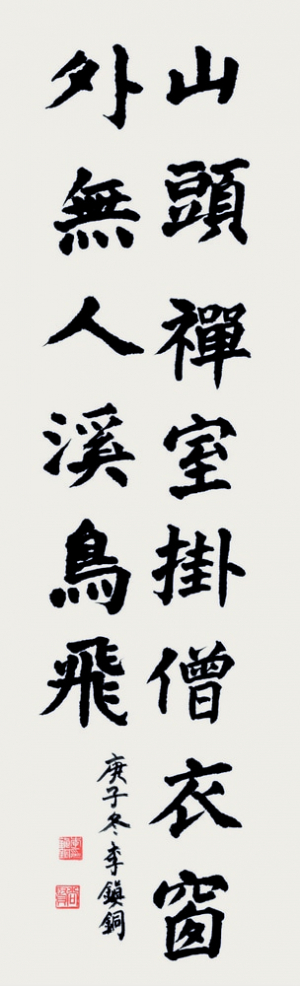 山頭禪室掛僧衣窗
外無人溪鳥飛
庚子冬李鎮銅